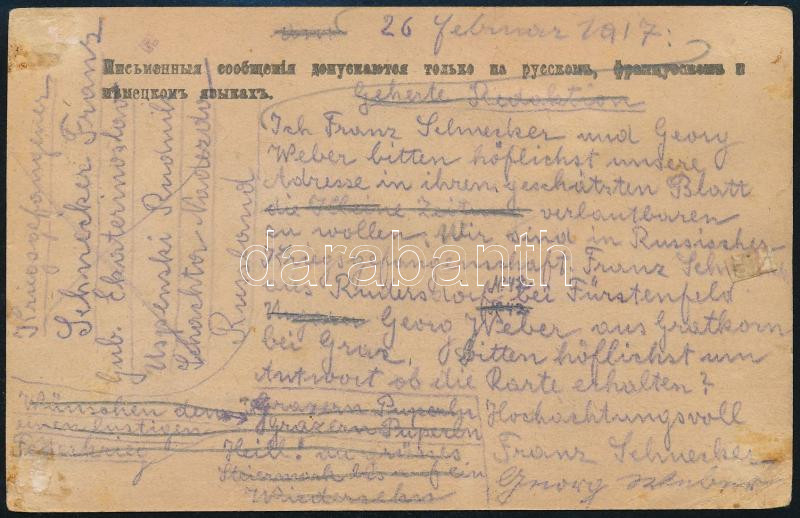 26 Februar 1917.
Письменныя сообщенія допускаются только на русскомъ, французскомъ и
нѣмецкомъ языкахъ.
Geherte Redaktion
Ich Franz Schnecker und Georg
Weber bitten höflichst unsere
Adresse in ihren geschätzten Blatt
die Kleine Zeitung verlautbaren
zu wollen, Wir sind in Russischer
Kriegsgefangenschaft Franz
aus Rudersdorf bei Fürstenfeld
Georg Weber aus Gratkorn
bei Graz, bitten höflichst um
Antwort ob die Karte erhalten?
Hochachtungsvoll
Franz Schnecker
Georg Weber
Kriegsgefangener
Schnecker Franz
Gub. Ekaterinoslav
Uspenski Rudnik
Schachta Nadezda
Rusland
Wünschen den
einen lustigen
Federkrieg
Grazern
Grazern
Heil! in grünes
Steiermark bis auf ein
Wiedersehn
darabanth